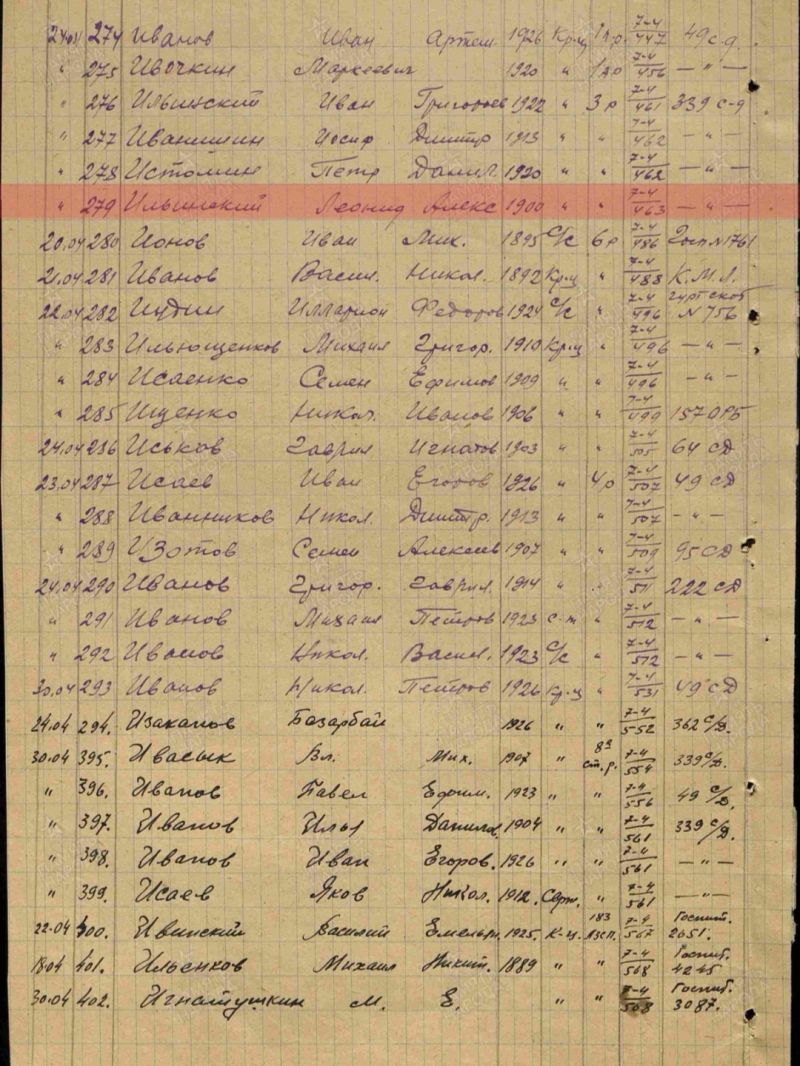 24.04 274 Иванов Иван Артем. 1926 Кр-ц 1 л.р. 7-4/447 49 с.д.
" 275 Ивочкин Маркеевич 1920 " 1 л р 7-4/456 — " —
" 276 Ильинский Иван Григорьев 1922 " 3 р 7-4/461 339 с-д
" 277 Иваншин Иосиф Дмитр 1913 " " 7-4/462 — " —
" 278 Истомин Петр Данил. 1920 " " 7-4/462 — " —
" 279 Ильинский Леонид Алекс 1900 " " 7-4/463 — " —
20.04 280 Ионов Иван Мих. 1895 С/с 6 р 7-4/486 Госп N 1761
21.04 281 Иванов Васил. Никол. 1892 Кр-ц " 7-4/488 К.М.Л.
22.04 282 Иудин Илларион Федоров 1924 С/с " 7-4/496 гурт скот N 756
" 283 Ильющенков Михаил Григор. 1910 Кр-ц " 7-4/496 — " —
" 284 Исаенко Семен Ефимов 1909 " " 7-4/496 — " —
" 285 Ищенко Никол. Иванов 1906 " " 7-4/499 157 ОРБ
24.04 286 Иськов Гаврил Игнатов 1903 " " 7-4/505 64 сД
23.04 287 Исаев Иван Егоров 1926 " 4 р 7-4/507 49 сД
" 288 Иванников Никол. Дмитр. 1913 " " 7-4/507 — " —
" 289 Изотов Семен Алексеев 1907 " " 7-4/509 95 СД
24.04 290 Иванов Григор. Гаврил. 1914 " " 7-4/511 222 сД
" 291 Иванов Михаил Петров 1923 с-т " 7-4/512 — " —
" 292 Иванов Никол. Васил. 1923 С/с " 7-4/512 — " —
30.04 293 Иванов Никол. Петров 1926 Кр-ц " 7-4/531 49 сД
24.04 294. Изаканов Базарбай 1926 " " 7-4/552 362 с/д.
30.04 395. Ивасык Вл. Мих. 1907 " 8й ст.р. 7-4/554 339 с/д.
" 396. Иванов Павел Ефим. 1923 " " 7-4/556 49 с/д.
" 397. Иванов Илья Данилов. 1904 " " 7-4/561 339 с/д.
" 398. Иванов Иван Егоров. 1926 " " 7-4/561 — " —
" 399. Исаев Яков Никол. 1912. Серж. " 7-4/561 — " —
22-04 400. Ивинский Василий Емельян. 1925. К-ц. 183 АЗСП. 7-4/567 Госпит. 2651.
18.04 401. Ильенков Михаил Никит. 1889 " " 7-4/568 Госпит. 4245
30.04 402. Игнатушкин М. Е. " " 7-4/568 Госпит. 3087.